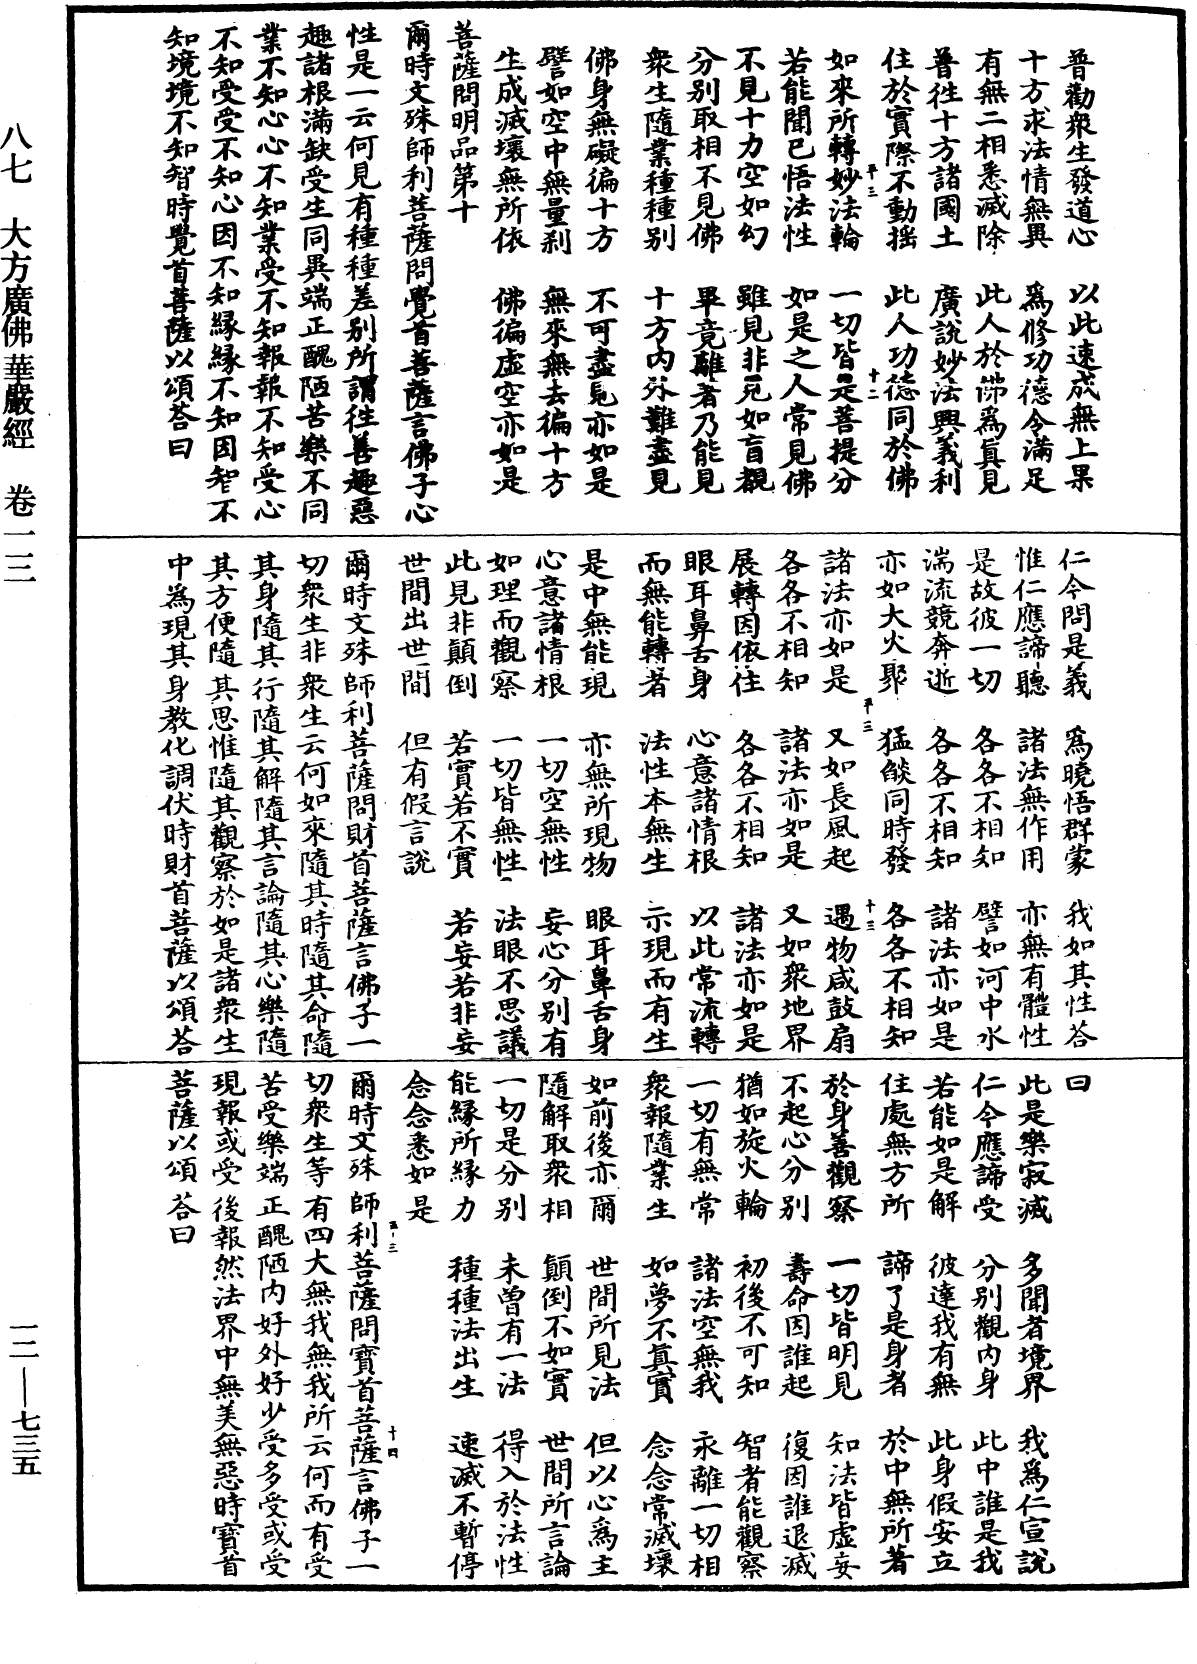 普勸衆生發道心　以此速成無上果
十方求法情無異　爲修功德令滿足
有無二相悉滅除　此人於佛爲真見
普往十方諸國土　廣說妙法興義利
住於實際不動搖　此人功德同於佛
如來所轉妙法輪　一切皆是菩提分
若能聞已悟法性　如是之人常見佛
不見十力空如幻　雖見非見如盲覩
分別取相不見佛　畢竟離著乃能見
衆生隨業種種別　十方內外難盡見
佛身無礙徧十方　不可盡見亦如是
譬如空中無量刹　無來無去徧十方
生成滅壞無所依　佛徧虛空亦如是
菩薩問明品第十
爾時文殊師利菩薩問覺首菩薩言佛子心
性是一云何見有種種差别所謂往善趣惡
趣諸根滿缺受生同異端正醜陋苦樂不同
業不知心心不知業受不知報報不知受心
不知受受不知心因不知緣緣不知因智不
知境境不知智時覺首菩薩以頌荅曰
仁今問是義　爲曉悟群蒙　我如其性荅
惟仁應諦聽　諸法無作用　亦無有體性
是故彼一切　各各不相知　譬如河中水
湍流競奔逝　各各不相知　諸法亦如是
亦如大火聚　猛燄同時發　各各不相知
諸法亦如是　又如長風起　遇物咸鼓扇
各各不相知　諸法亦如是　又如衆地界
展轉因依住　各各不相知　諸法亦如是
眼耳鼻舌身　心意諸情根　以此常流轉
而無能轉者　法性本無生　示現而有生
是中無能現　亦無所現物　眼耳鼻舌身
心意諸情根　一切空無性　妄心分別有
如理而觀察　一切皆無性　法眼不思議
此見非顛倒　若實若不實　若妄若非妄
世間出世間　但有假言說
爾時文殊師利菩薩問財首菩薩言佛子一
切衆生非衆生云何如來隨其時隨其命隨
其身隨其行隨其解隨其言論隨其心樂隨
其方便隨其思惟隨其觀察於如是諸衆生
中為現其身教化調伏時財首菩薩以頌荅
曰
此是樂寂滅　多聞者境界　我爲仁宣說
仁今應諦受　分別觀內身　此中誰是我
若能如是解　彼達我有無　此身假安立
住處無方所　諦了是身者　於中無所著
於身善觀察　一切皆明見　知法皆虛妄
不起心分別　壽命因誰起　復因誰退滅
猶如旋火輪　初後不可知　智者能觀察
一切有無常　諸法空無我　永離一切相
衆報隨業生　如夢不真實　念念常滅壞
如前後亦爾　世間所見法　但以心爲主
隨解取衆相　顛倒不如實　世間所言論
一切是分別　未曾有一法　得入於法性
能緣所緣力　種種法出生　速滅不暫停
念念悉如是
爾時文殊師利菩薩問寶首菩薩言佛子一
切衆生等有四大無我無我所云何而有受
苦受樂端正醜陋内好外好少受多受或受
現報或受後報然法界中無美無惡時寶首
菩薩以頌荅曰
平三
十二
平三
十三
平三
十四
八七　大方廣佛華嚴經　卷一三
一二—七三五